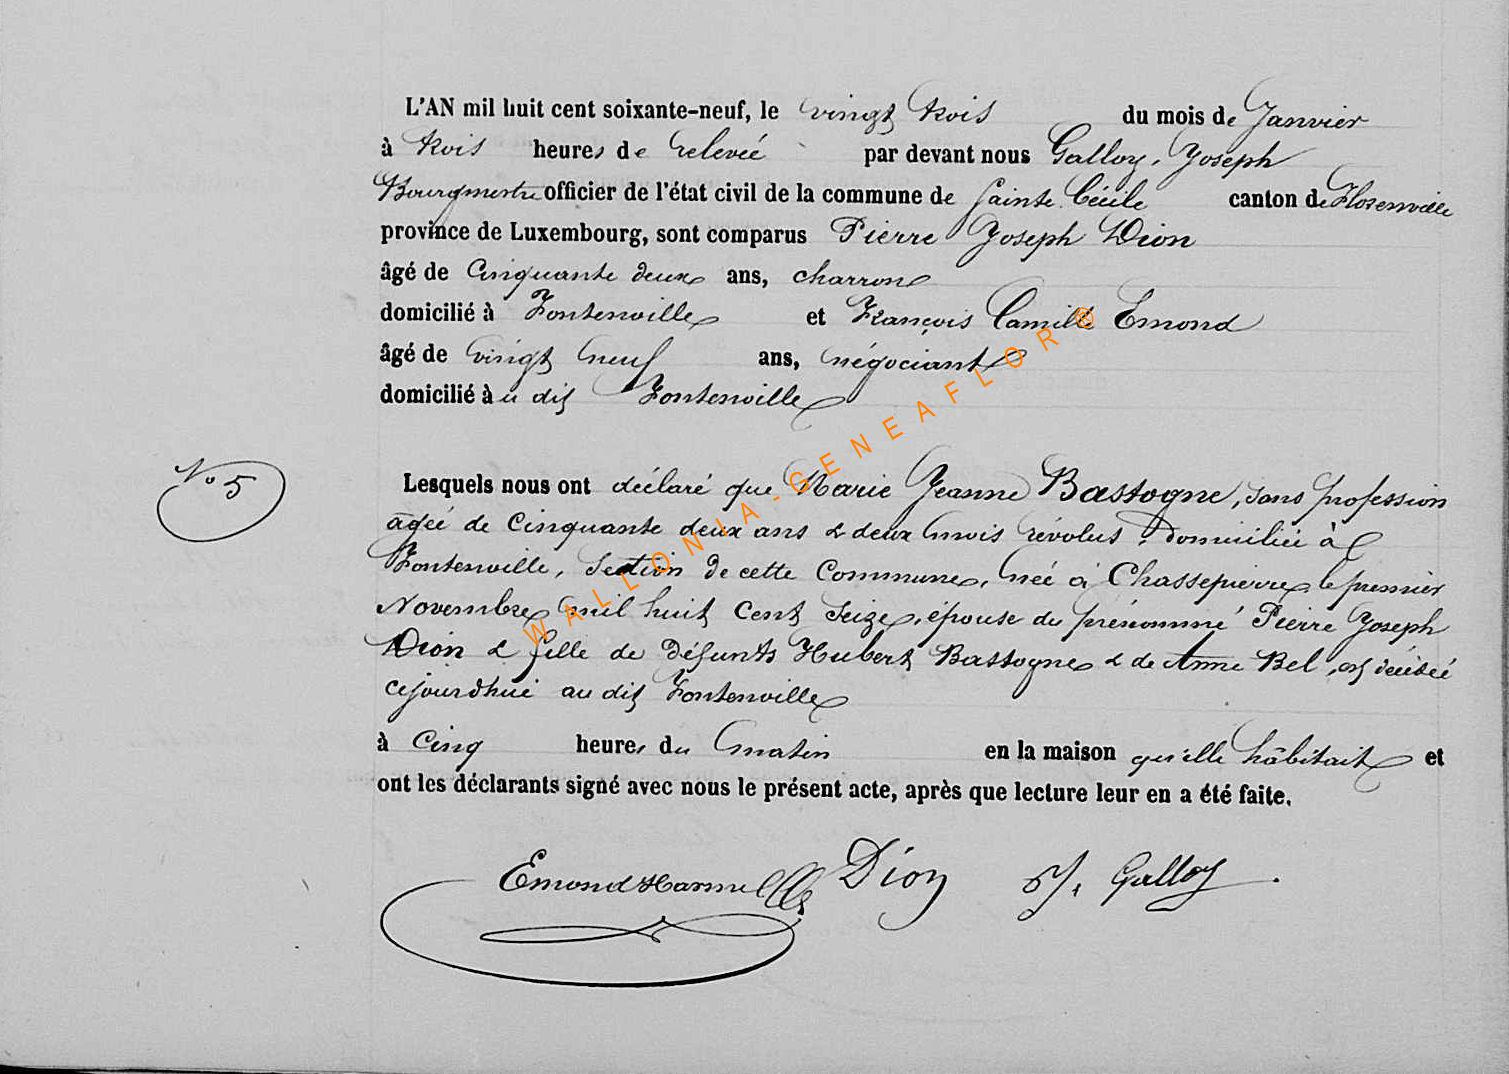 L'AN mil huit cent soixante-neuf, le vingt trois du mois de Janvier
à trois heures de relevée par devant nous Galloy, Joseph
Bourgmestre officier de l'état civil de la commune de Sainte Cécile canton de Florenville
province de Luxembourg, sont comparus Pierre Joseph Dion
âgé de Cinquante deux ans, charron
domicilié à Fontenoille et François Camille Emond
âgé de vingt neuf ans, négociant
domicilié au dit Fontenoille
N° 5
Lesquels nous ont déclaré que Marie Jeanne Bastogne, sans profession
âgée de Cinquante deux ans & deux mois révolus, domiciliée à
Fontenoille, Section de cette Commune, née à Chassepierre le premier
Novembre mil huit Cent Seize, épouse du prénommé Pierre Joseph
Dion & fille de défunts Hubert Bastogne & de Anne Bel, est décédée
cejourd'hui au dit Fontenoille
à Cinq heures du matin en la maison qu'elle hâbitait et
ont les déclarants signé avec nous le présent acte, après que lecture leur en a été faite.
Emond Dion J. Galloy
WALLONIA-GENEAFLOR®